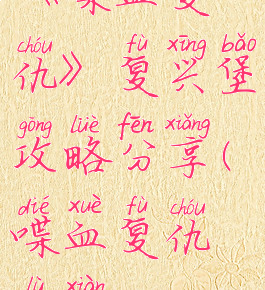 《喋血复
chóu fù xīng bǎo
仇》 复兴堡
gōng lüè fēn xiǎng
攻略分享(
dié xuè fù chóu
喋血复仇
lù xiàn